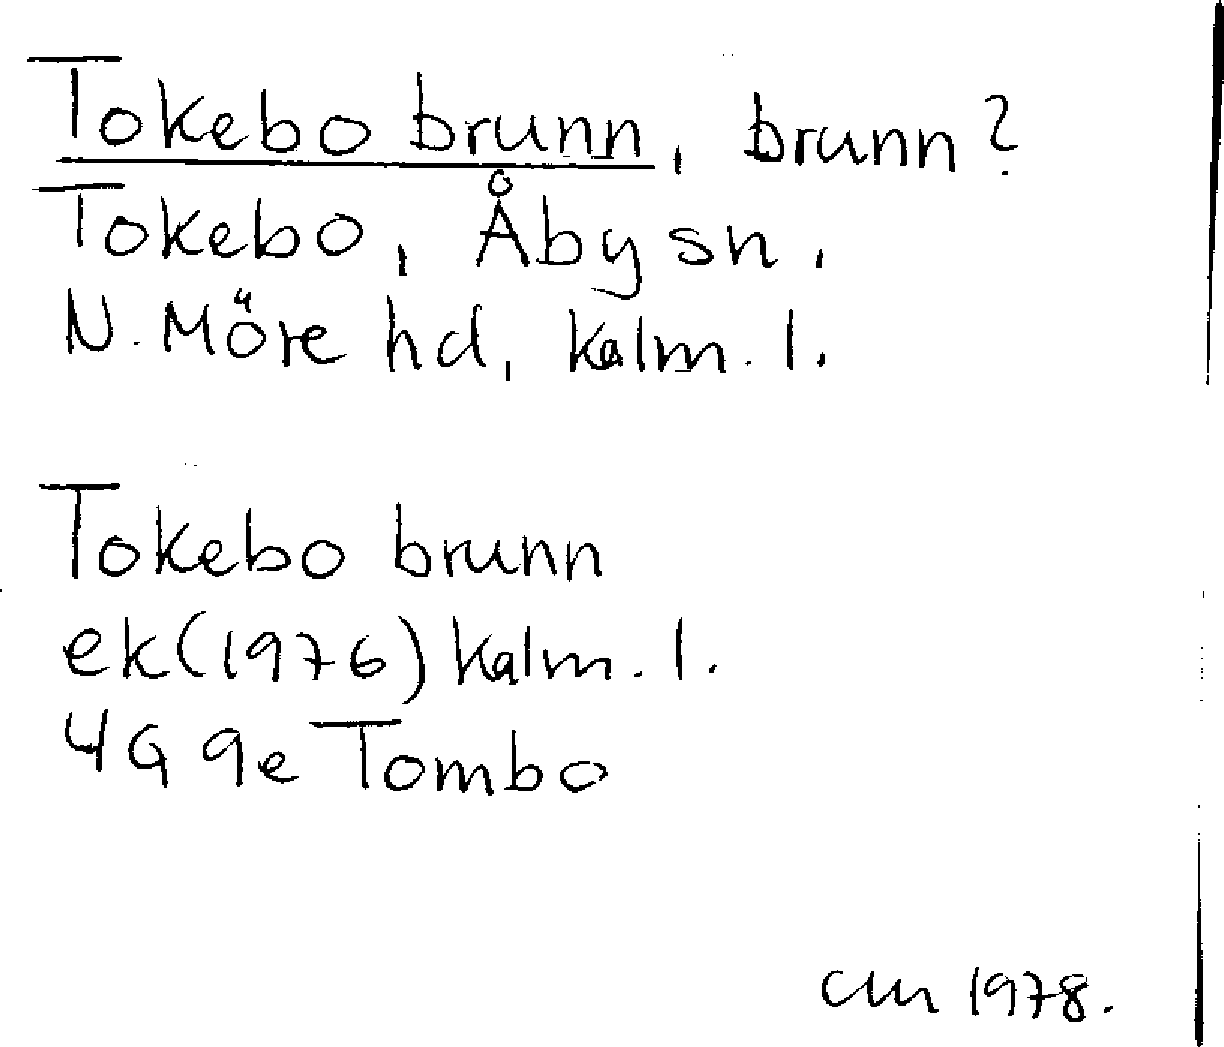 Tokebo brunn, brunn?
Tokebo, Åby sn,
N. Möre hd, Kalm. l.
Tokebo brunn
ek(1976) Kalm. l.
4G 9e Tombo
1978.